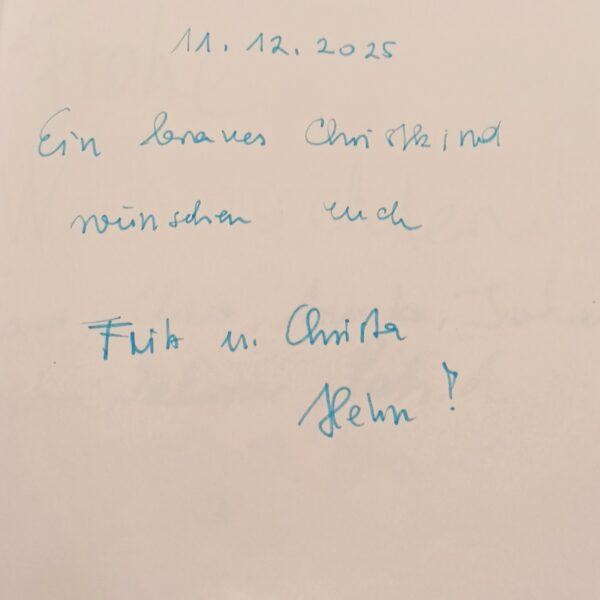 11.12.2025
Ein braves Christkind
wünschen euch
Fritz u. Christa
Hehn!